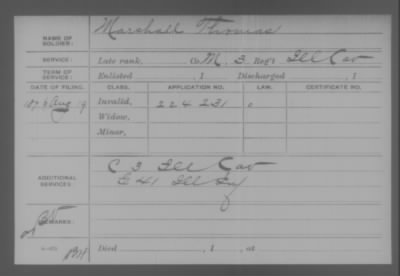 NAME OF SOLDIER: Marshall Thomas
SERVICE: Late rank, Co. M, 3 Reg't Ill Cav
TERM OF SERVICE: Enlisted , 1 Discharged , 1
DATE OF FILING. CLASS. APPLICATION NO. LAW. CERTIFICATE NO.
1876 Aug 19 Invalid, 224 231
Widow,
Minor,
ADDITIONAL SERVICES: C 3 Ill Cav
E 41 Ill Inf
REMARKS:
Died , 1 , at